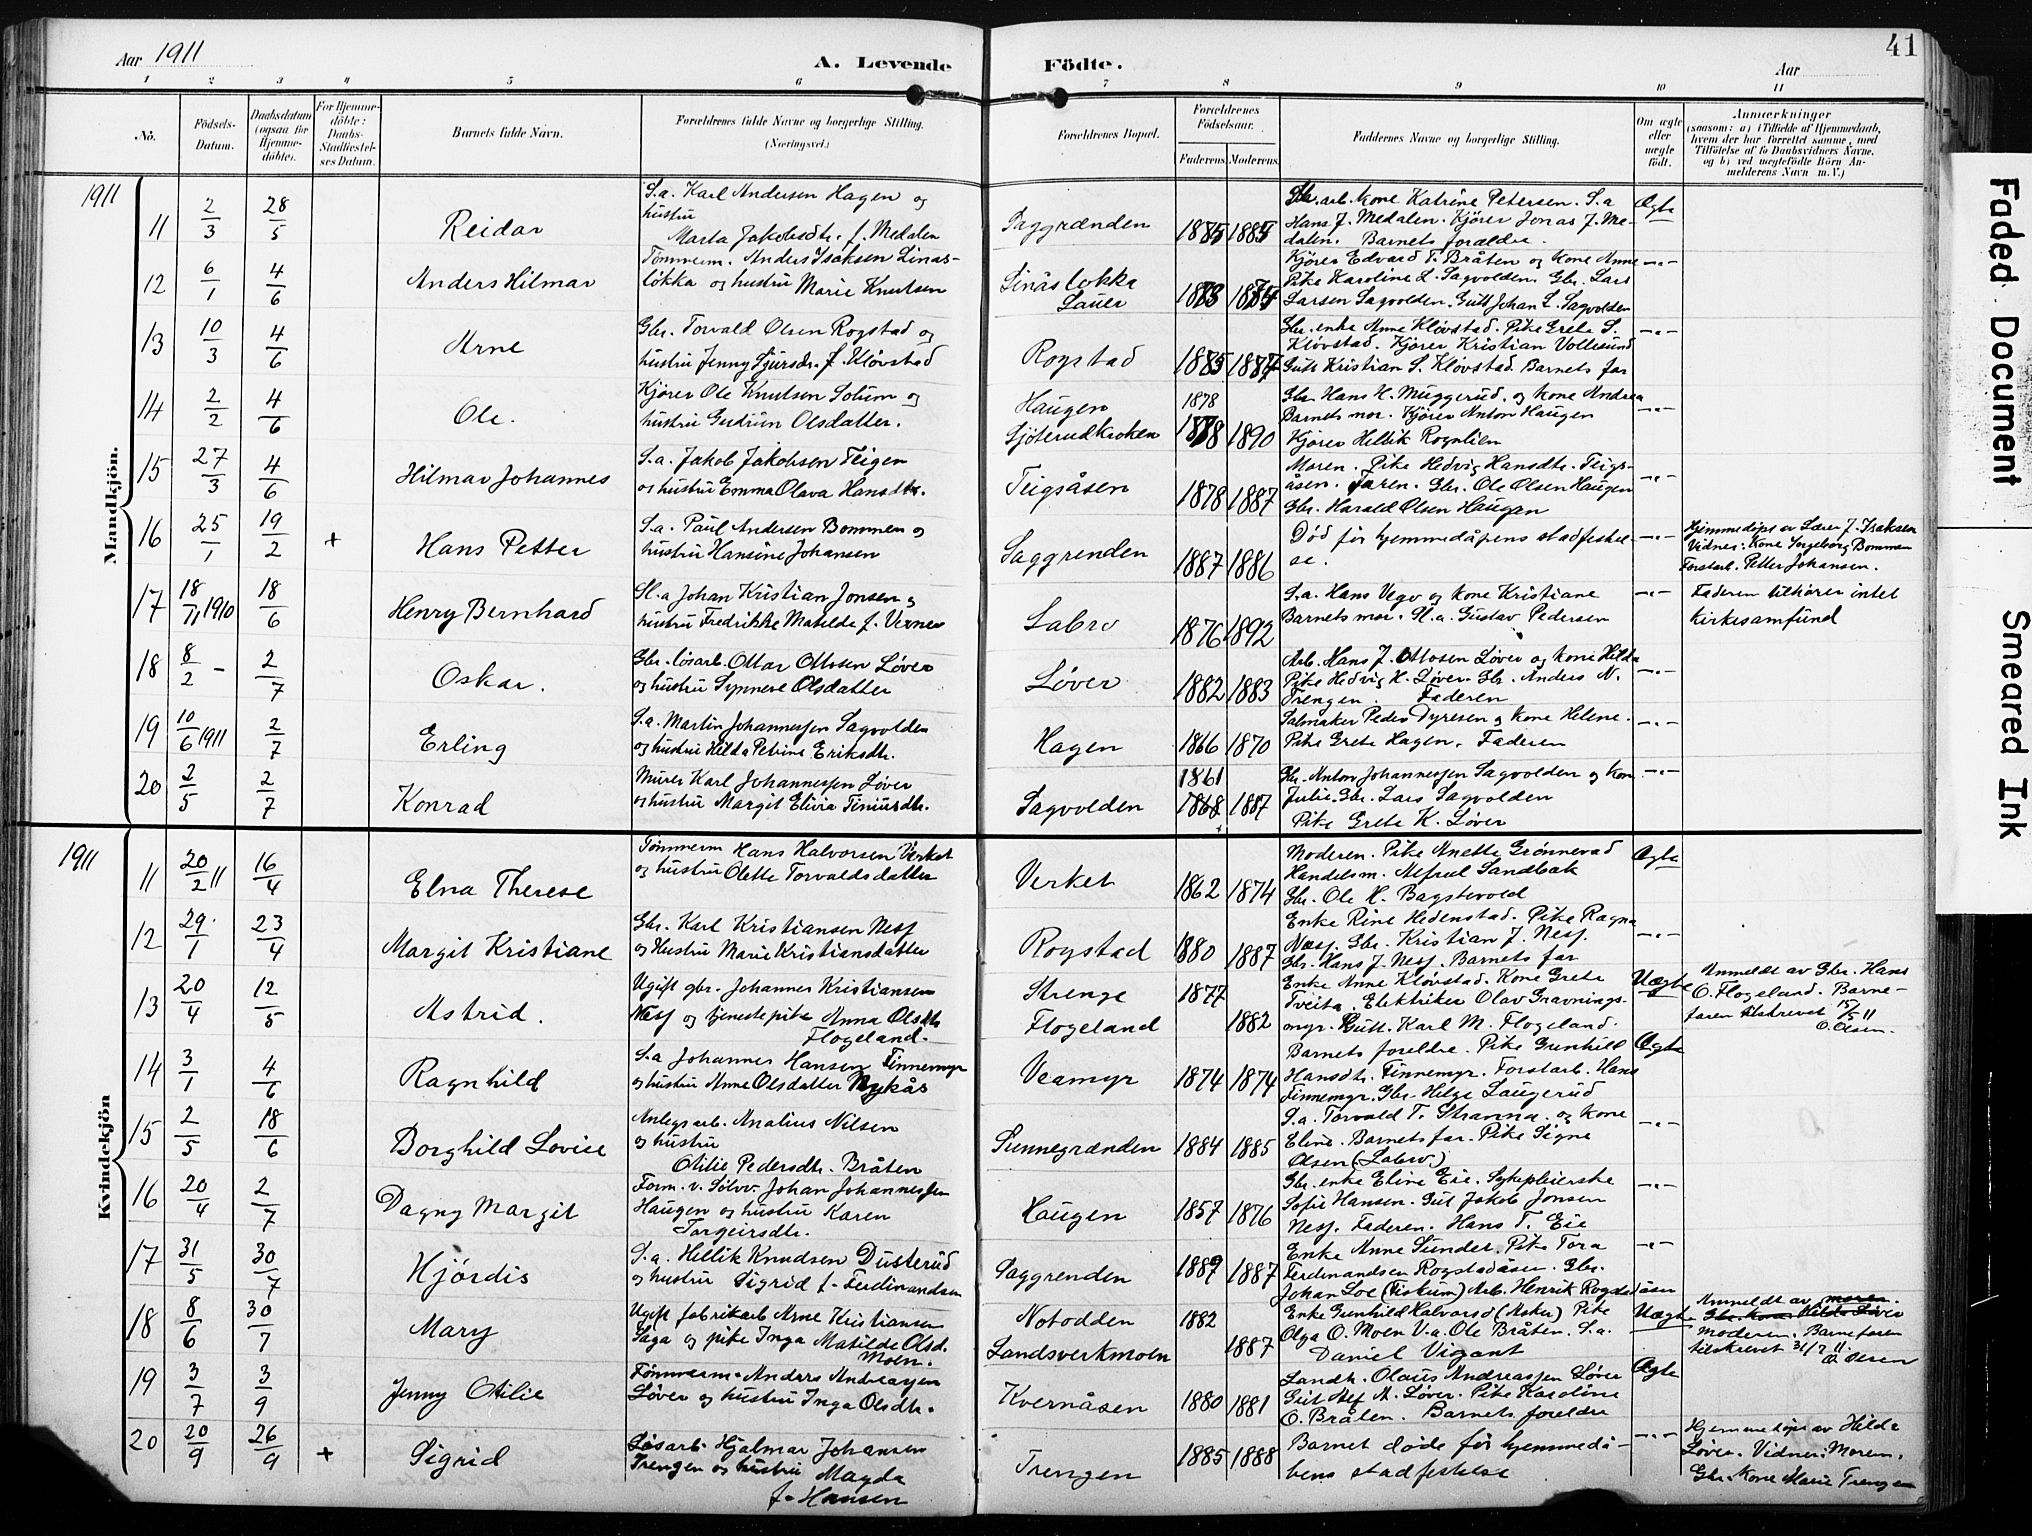 Aar 1911
A. Levende Födte.
Aar
41
1 2 3 4 5 6 7 8 9 10 11
No.
Födsels-Datum.
Daabsdatum (ogsaa for Hjemme-döbte).
For Hjemme-döbte: Daabs-Stadfæstel-ses Datum.
Barnets fulde Navn.
Forældrenes fulde Navne og borgerlige Stilling.
(Næringsvei.)
Forældrenes Bopæl.
Forældrenes Födselsaar.
Faderens. Moderens.
Faddernes Navne og borgerlige Stilling.
Om ægte eller uægte født.
Anmærkninger
(saasom: a) i Tilfælde af Hjemmedaab,
hvem der har forrettet samme, med
Tilföielse af to Daabsvidners Navne,
og b) ved uægtefödte Börn An-
melderens Navn m. V.)
Mandkjön.
1911
11 2/3 28/5 Reidar
S.a. Karl Andersen Hagen og
hustru
Marta Jakobsdtr. f. Medalen
Saggrænden 1885 1885
Gbr.arb. kone Katrine Petersen. S.a
Hans J. Medalen. Kjører Jonas J. Me-
dalen. Barnets forældre.
Ægte
12 6/1 4/6 Anders Hilmar
Tømmerm. Anders Isaksen Linas-
løkka og hustru Marie Knutsen
Linåsløkka
Lauer
Kjører Edvard T. Bråten og kone Anne
Pike Karoline L. Sagvolden. Gbr. Lars
Larsen Sagvolden. Gutt Johan L. Sagvolden
-"-
13 10/3 4/6 Arne
Gbr. Torvald Olsen Rogstad og
hustru Jenny Sjursdr. f. Kløvstad
Rogstad 1885 1887
Gbr. enke Anne Kløvstad. Pike Grete S.
Kløvstad. Kjører Kristian Vollesund
Gutt Kristian S. Kløvstad. Barnets far
-"-
14 2/2 4/6 Ole.
Kjører Ole Knutsen Solum og
hustru Gudrun Olsdatter.
Haugen
Sjøterudkroken
1878
1878 1890
Gbr. Hans H. Muggerud. og kone Andrea
Barnets mor. Kjører Anton Haugen
Kjører Hellik Rognlien
-"-
15 27/3 4/6 Hilmar Johannes
S.a. Jakob Jakobsen Teigen
og hustru Emma Olava Hansdtr.
Teigsåsen 1878 1887
Moren. Pike Hedvig Hansdtr. Teigs-
åsen. Faren. Gbr. Ole Olsen Haugen
Gbr. Harald Olsen Haugan
-"-
16 25/1 19/2 + Hans Petter
S.a. Paul Andersen Bommen og
hustru Hansine Johansen
Saggrenden 1887 1886
Død før hjemmedåpens stadfestel-
se.
-"-
Hjemmedøpt av Lærer J. Isaksen
Vidner: Kone Ingeborg Bommen
Forstarb. Petter Johansen.
17 18/11 1910 18/6 Henry Bernhard
Sl.a Johan Kristian Jonsen og
hustru Fredrikke Matilde f. Verner
Labro 1876 1892
S.a. Hans Vego og kone Kristiane
Barnets mor. Sl.a. Gustav Pedersen
-"-
Faderen tilhører intet
kirkesamfund
18 8/2 - 2/7 Oskar.
Gbr. løsarb. Ottar Ottosen Løver
og hustru Synneve Olsdatter
Løver 1882 1883
Arb. Hans J. Ottosen Løver og kone Hilda
Pike Hedvig H. Løver. Gbr. Anders N.
Trengen. Faderen
-"-
19 10/6 1911 2/7 Erling
S.a. Martin Johannessen Sagvolden
og hustru Hilda Petrine Eriksdtr.
Hagen 1866 1870
Salmaker Peder Dyresen og kone Helene.
Pike Grete Hagen. Faderen
-"-
20 2/5 2/7 Konrad
Murer Karl Johannessen Løver
og hustru Margit Elivia Tiniusdtr.
Sagvolden
1861
1868 1887
Gbr. Anton Johannessen Sagvolden og kon
Julie. Gbr. Lars Sagvolden
Pike Grete K. Løver
-"-
Kvindekjön
1911
11 20/2 11 16/4 Elna Therese
Tømmerm Hans Halvorsen Verket
og hustru Olette Torvaldsdatter
Verket 1862 1874
Moderen. Pike Anette Grønnevad
Handelsm. Alfred Sandbak
Gbr. Ole H. Bagstevold
Ægte
12 29/1 23/4 Margit Kristiane
Gbr. Karl Kristiansen Nesj
og hustru Marie Kristiansdatter
Rogstad 1880 1887
Enke Rine Hedenstad. Pike Ragna
Næsj. Gbr. Kristian J. Nesj.
Gbr. Hans J. Nesj. Barnets far
-"-
13 20/4 12/5 Astrid.
Ugift gbr. Johannes Kristiansen
Nesj og tjenestepike Anna Olsdtr
Flogeland.
Strenge 1877
Flogeland 1882
Enke Anne Kløvstad. Kone Grete
Tveita. Elektriker Olav Gravnings-
myr. Gutt. Karl M. Flogeland.
Uægte
Anmeldt av Gbr. Hans
O. Flogeland. Barne-
faren tilskrevet 15/5 11
O. Olsen.
14 3/1 4/6 Ragnhild
S.a Johannes Hansen Finnemyr
og hustru Anne Olsdatter Nykås
Veamyr 1874 1874
Barnets foreldre. Pike Gunhild
Hansdtr. Finnemyr. Forstarb. Hans
Finnemyr. Gbr. Helge Laugerud
Ægte
15 2/5 18/6 Borghild Lovise
Anlegsarb. Analius Nilsen
og hustru
Otilie Pedersdtr. Bråten
Sunnegrænden 1884 1885
S.a. Torvald T. Stranna. og kone
Eline. Barnets far. Pike Signe
Olsen (Labro)
-"-
16 20/4 2/7 Dagny Margit
Form. v. Sølvv. Johan Johannessen
Haugen og hustru Karen
Torgeirsdtr.
Haugen 1857 1876
Gbr. enke Eline Eie. Sykepleierske
Sofie Hansen. Gut Jakob Jonsen
Nesj. Faderen. Hans T. Eie
-"-
17 31/5 30/7 Hjördis
S.a. Hellik Knudsen Dusterud
og hustru Sigrid f. Ferdinandsen
Saggrenden 1889 1887
Enke Anne Sundet. Pike Tora
Ferdinandsen Rogstadåsen. Gbr.
Johan Loe (Fiskum) Arb. Henrik Rogstadåsen
-"-
18 8/6 30/7 Mary
Ugift fabrikarb Arne Kristiansen
Saga og pike Inga Matilde Olsd.
Moen.
Notodden 1882
Landsverkmoen 1887
Enke Gunhild Halvorsd (Asker) Pike
Olga O. Moen V.a. Ole Bråten. S.a.
Daniel Vigant
Uægte
Anmeldt av moren.
Gbr. kone Hilda Løver
Moderen. Barnefaren
tilskrevet 31/7 11.
O. Olsen
19 3/7 3/9 Jenny Otilie
Tømmerm. Anders Andreassen
Løver og hustru Inga Olsdtr.
Kvernåsen 1880 1881
Landh. Olaus Andreassen Løver
Gut Alf A. Løver. Pike Karoline
O. Bråten. Barnets foreldre
Ægte
20 20/9 26/9 + Sigrid
Løsarb. Hjalmar Johansen
Trengen og hustru Magda
f. Hansen
Trengen 1885 1888
Barnet døde før hjemmedå-
bens stadfestelse
-"-
Hjemmedøpt av Hilda
Løver. Vidner: Moren.
Gbr. kone Marie Trengen
Faded Document
Smeared Ink